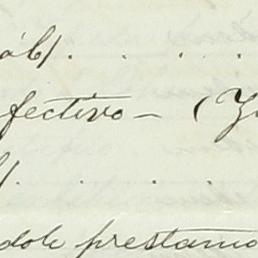 áb/. . . .
fectivo — (
/. . . .
dole prestamo